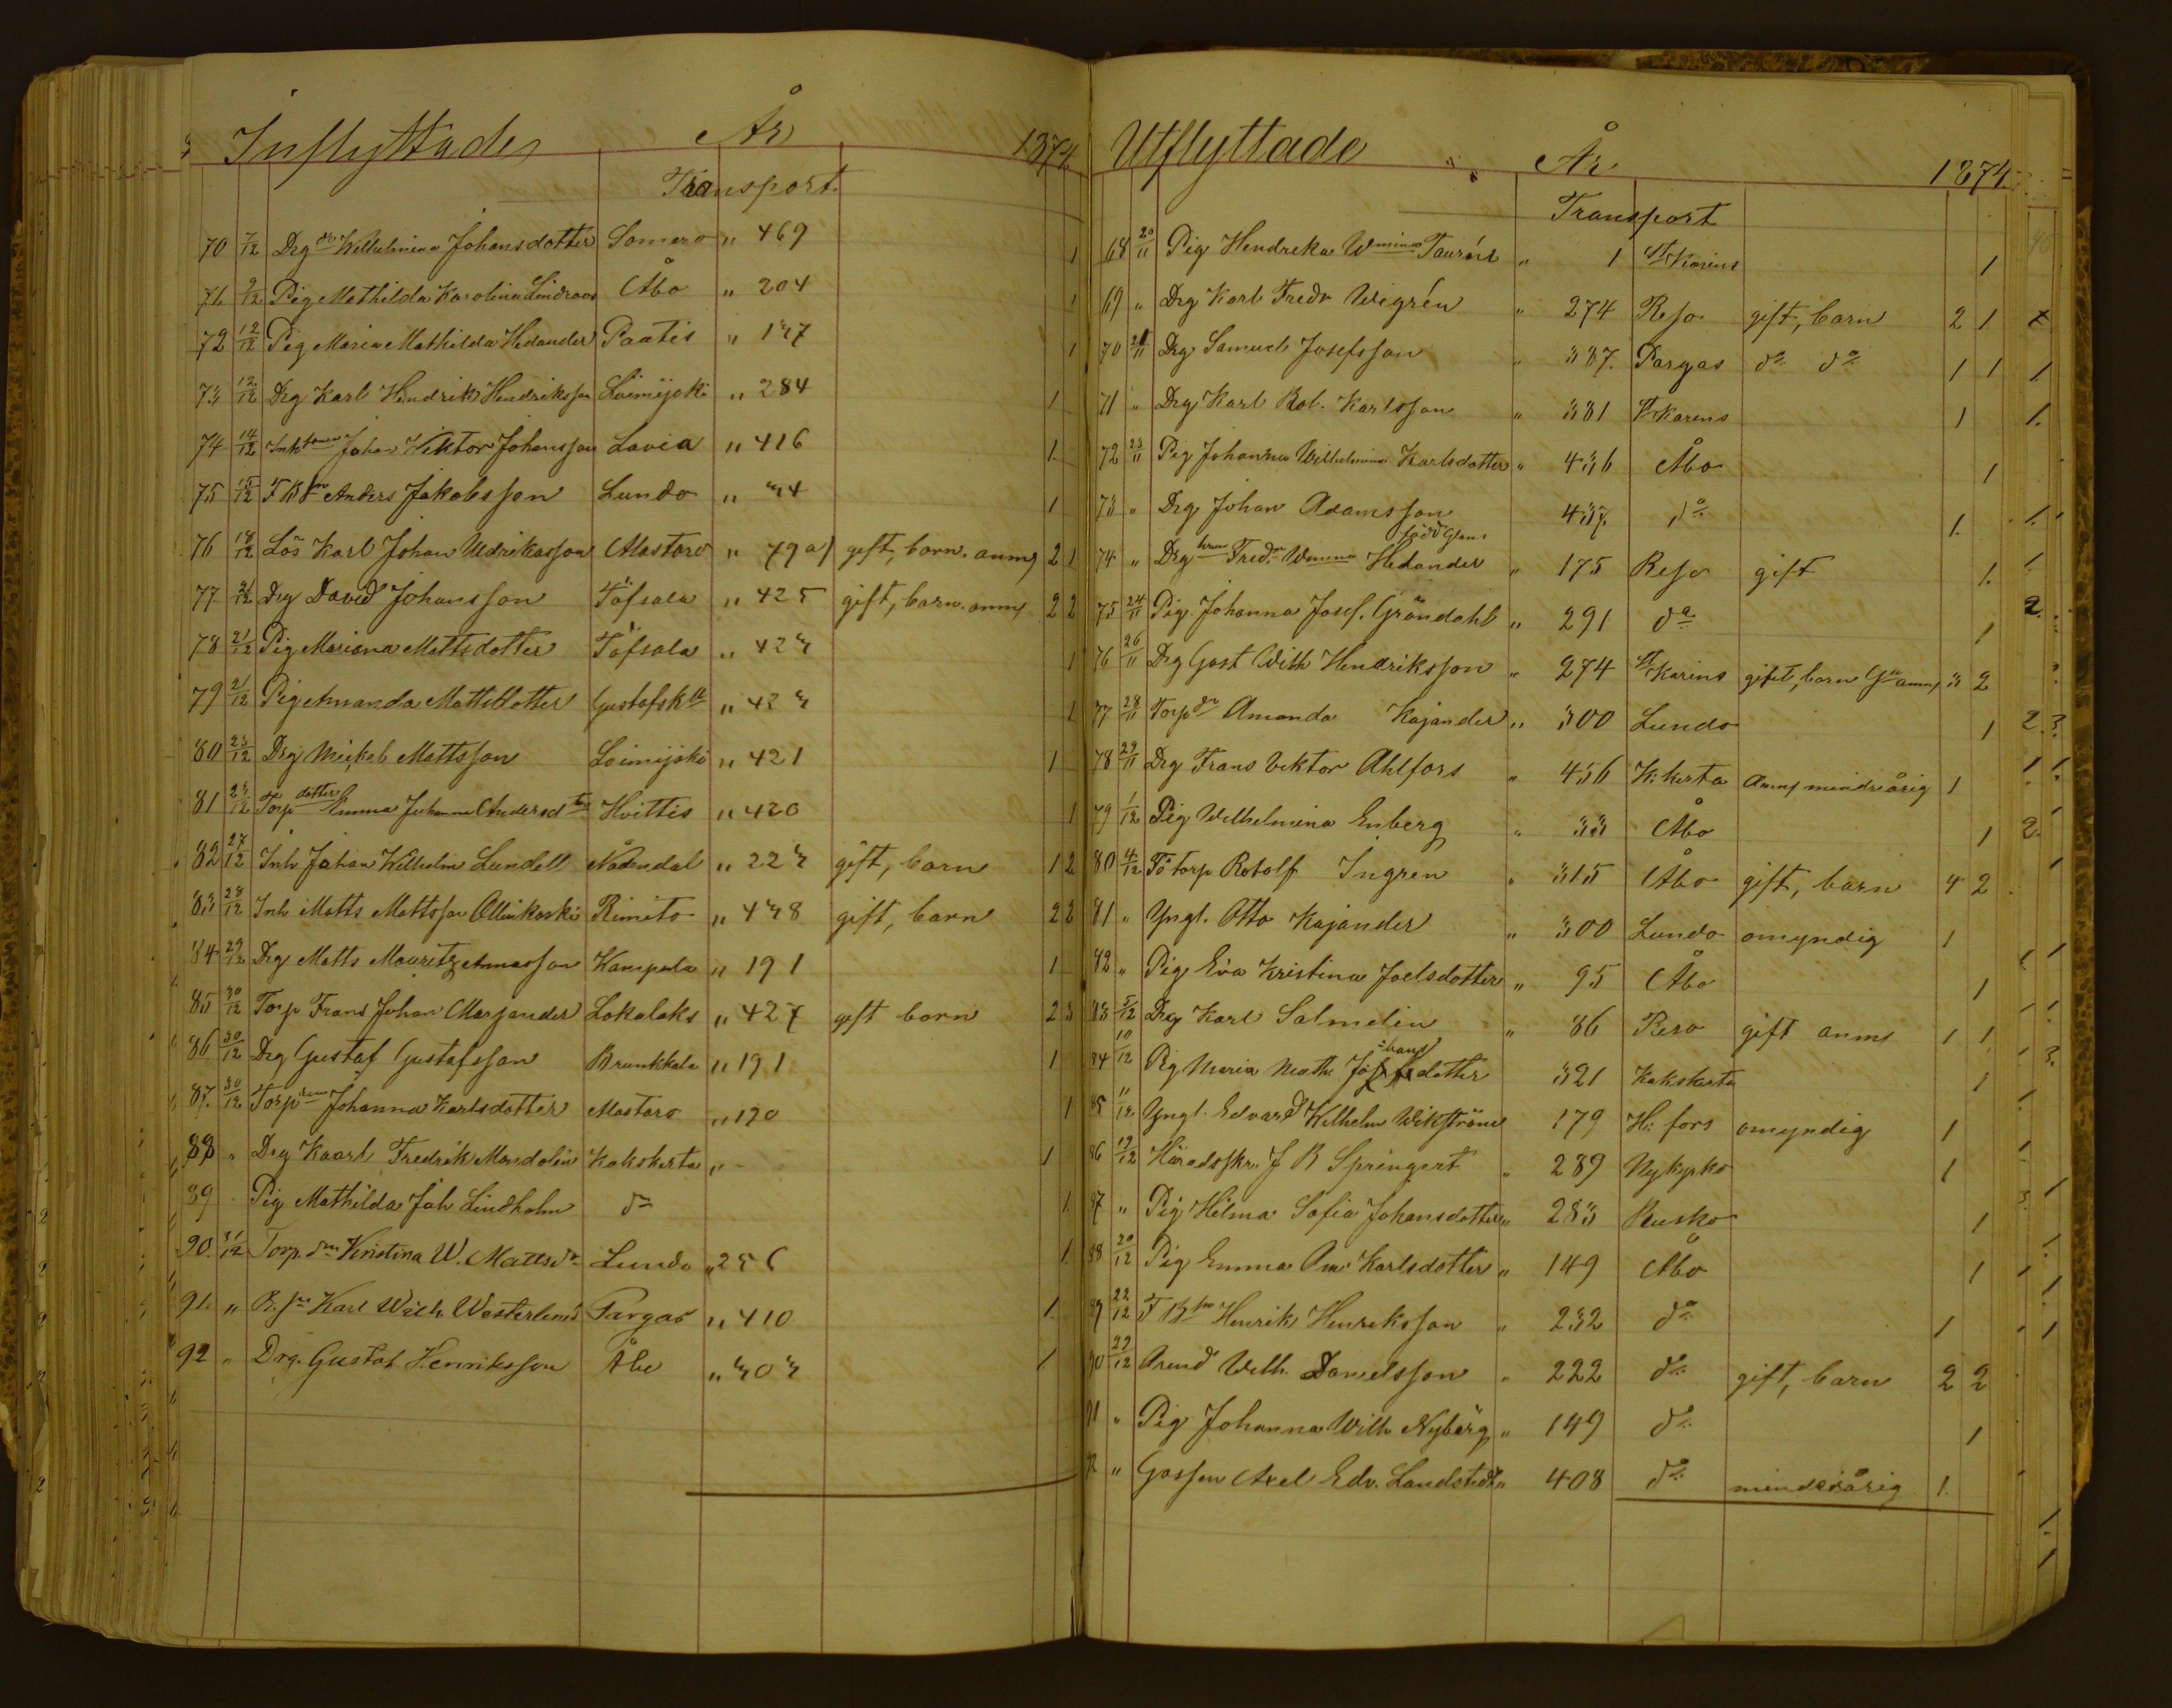 Inflyttade År 1874
Transport
70 7/12 Drg dr Wilhelmina Johansdotter Somero " 469 1
71 9/12 Pig Mathilda Karolina Lindroos Åbo " 204 1
72 12/12 Pig Maria Mathilda Hedander Paatis " 137 1
73 12/12 Drg Karl Hendrik Hendriksson Loimijoki " 284 1
74 14/12 Inh sonen Johan Viktor Johansson Lavia " 416 1
75 15/12 F B sn Anders Jakobsson Lundo " 34 1
76 18/12 Lös Karl Johan Udrikasson Alastaro " 79 a) gift, barn. anm 2 1
77 21/12 Drg David Johansson Töfsala " 425 gift, barn. anm 2 2
78 21/12 Pig Mariana Mattsdotter Töfsala " 423 1
79 21/12 Pig Amanda Mattsdotter Gustafs " 423 1
80 23/12 Drg Mickel Mattsson Loimijoki " 421 1
81 23/12 Torp dotter Emma Johanna Andersd tr Hvittis " 420 1
82 27/12 Inh Johan Wilhelm Lundell Nådendal " 223 gift, barn 1 2
83 28/12 Inh Matts Mattsson Ollinkoski Rimito " 438 gift, barn 2 2
84 29/12 Drg Matts Mauritz Amasson Kampela " 191 1
85 30/12 Torp Frans Johan Marjander Lokalaks " 427 gift barn 2 3
86 30/12 Drg Gustaf Gustafsson Brunkkala " 191 1
87. 30/12 Torp Johanna Karlsdotter Alastaro " 120 1
88 " Drg Kaarl Fredrik Mandolin Kakskerta " - 1
89 Pig Mathilda Joh Lindholm do 1
90. 31/12 Torp. dr Kristina W. Mattsdr Lundo " 256 1
91. " B. sn Karl Wilh. Westerlund Pargas " 410 1
92 " Drg. Gustaf Henriksson Åbo " 303 1
Utflyttade År 1874
Transport
68 20/11 Pig Hendrika Wmina Taurén " 1 St Karins 1
69 " Drg Karl Fredr Wigrén " 274 Reso gift, barn 2 1
70 21/11 Drg Samuel Josefsson " 387. Pargas do do 1 1
71 " Drg Karl Rob. Karlsson " 381 St Karins 1
72 23/11 Pig Johanna Wilhelmina Karlsdotter " 436 Åbo 1
73 " Drg Johan Adamsson 437. do 1.
född Glans
74 " Drg hrun Fred. Wmina Hedander " 175 Reso gift 1.
75 24/11 Pig Johanna Josef. Gröndahl " 291 do 1
76 26/11 Drg Gust Wilh Hendriksson " 274 St Karins gift, barn anm 3 2
77 28/11 Torp dr Amanda Kajander " 300 Lundo 1
78 29/11 Drg Frans Viktor Ahlfors " 456 K:kerta Anm minderårig 1
79 1/12 Pig Wilhelmina Enberg " 33 Åbo 1
80 4/12 Torp Rotolf Ingren " 315 Åbo gift, barn 4 2
81 " Yngl. Otto Kajander " 300 Lundo omyndig 1
82 " Pig Eva Kristina Joelsdotter " 95 Åbo 1
83 5/12 Drg Karl Salmelin " 86 Reso gift anm 1 1
hans
84 10/12 Pig Maria Math. dotter 321 Kakskerta 1
85 11/12 Yngl. Edvard Wilhelm Wikström 179 H:fors omyndig 1
86 19/12 Häradsskr. J R Springert " 289 Nykyrko 1
87 " Pig Hilma Sofia Johansdotter " 283 Rusko 1
88 20/12 Pig Emma Am. Karlsdotter " 149 Åbo 1
89 22/12 F B sn Henrik Henriksson " 232 do 1
90 22/12 Arend Wilh. Danielsson " 222 do gift, barn 2 2
91 " Pig Johanna Wilh Nyberg " 149 do 1
92 " Gossen Axel Edv. Landstedt " 408 do minderårig 1.